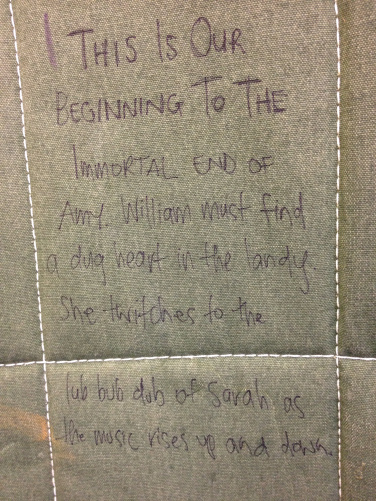 THIS IS OUR
BEGINNING TO THE
IMMORTAL END OF
Amy. William must find
a dug heart in the landy.
She twitches to the
lub bub dub of Sarah as
the music rises up and down.